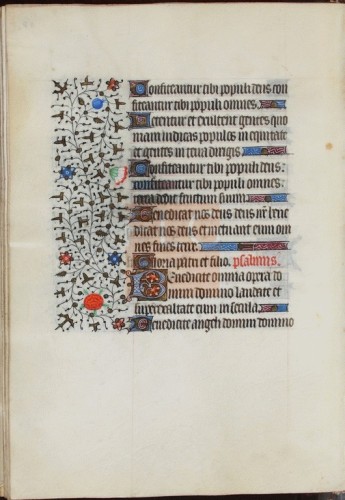 Confiteantur tibi populi deus con
fiteantur tibi populi omnes.
Letentur et exultent gentes quo
niam iudicas populos in equitate
et gentes in terra dirigis.
Confiteantur tibi populi deus:
confiteantur tibi populi omnes:
terra dedit fructum suum.
Benedicat nos deus deus nr bene
dicat nos deus et metuant eum om
nes fines terre.
Gloria patri et filio. psalmus.
Benedicite omnia opera do
mini domino laudate et
superexaltate eum in secula.
Benedicite angeli domini domino